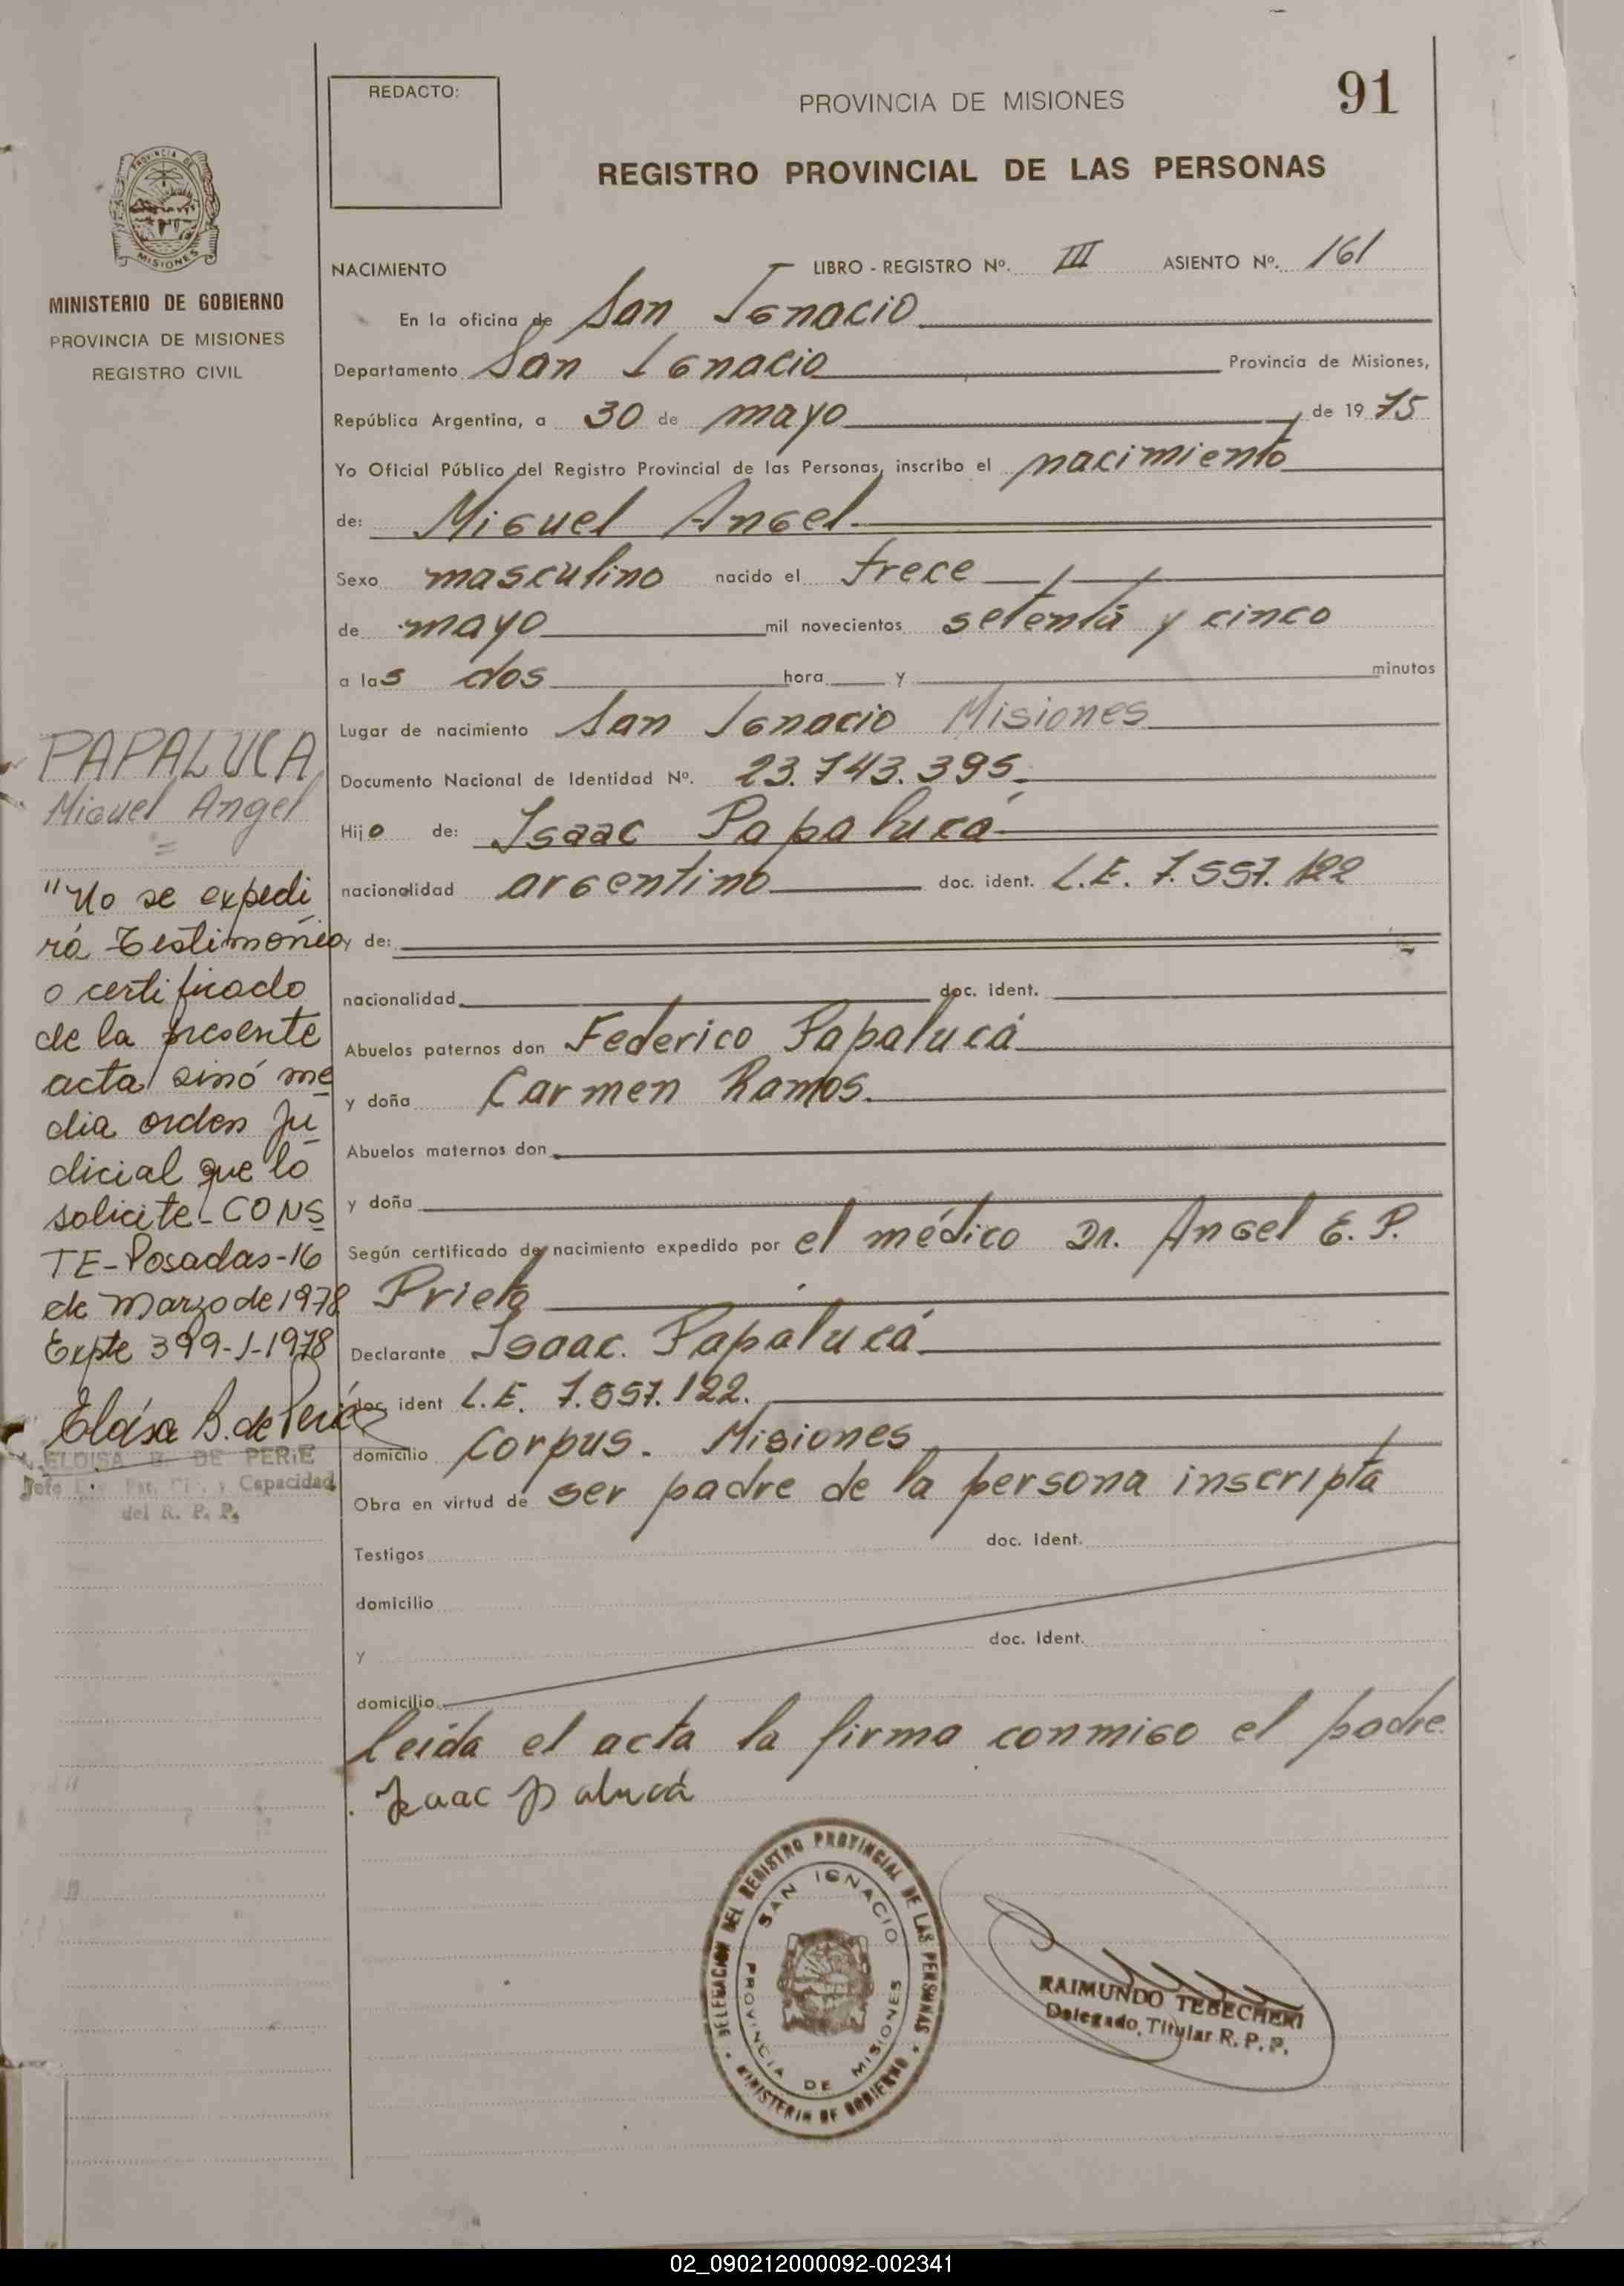 REDACTO:
PROVINCIA DE MISIONES
91
REGISTRO PROVINCIAL DE LAS PERSONAS
PROVINCIA DE
MISIONES
MINISTERIO DE GOBIERNO
PROVINCIA DE MISIONES
REGISTRO CIVIL
NACIMIENTO LIBRO - REGISTRO Nº. III ASIENTO Nº. 161
En la oficina de San Ignacio
Departamento San Ignacio Provincia de Misiones,
República Argentina, a 30 de mayo de 1975
Yo Oficial Público del Registro Provincial de las Personas, inscribo el nacimiento
de: Miguel Angel
Sexo masculino nacido el trece
de mayo mil novecientos setenta y cinco
a las dos hora y minutos
Lugar de nacimiento San Ignacio Misiones
Documento Nacional de Identidad Nº. 23.743.395
Hijo de: Isaac Papalucá
nacionalidad argentino doc. ident. L.E. 7.557.122
y de:
nacionalidad doc. ident.
Abuelos paternos don Federico Papalucá
y doña Carmen Ramos.
Abuelos maternos don
y doña
Según certificado de nacimiento expedido por el médico Dr. Angel E. P.
Prieto
Declarante Isaac. Papalucá
doc. ident L.E. 7.557.122.
domicilio Corpus. Misiones
Obra en virtud de ser padre de la persona inscripta
Testigos doc. ident.
domicilio
y doc. ident.
domicilio
leida el acta la firma conmigo el padre.
PAPALUCA
Miguel Angel
"No se expedi
rá Testimonio
o certificado
de la presente
acta sinó me
dia orden Ju
dicial que lo
solicite - CONS
TE - Posadas - 16
de Marzo de 1978
Expte 399-J-1978
Eloísa B. de Perié
ELOISA B. DE PERIE
Jefe Est. Capacidad
del R. P. P.
Isaac Palucá
DELEGACION DEL REGISTRO PROVINCIAL DE LAS PERSONAS
SAN IGNACIO
PROVINCIA DE MISIONES
MINISTERIO DE GOBIERNO
RAIMUNDO TEBECHERI
Delegado Titular R. P. P.
02_090212000092-002341